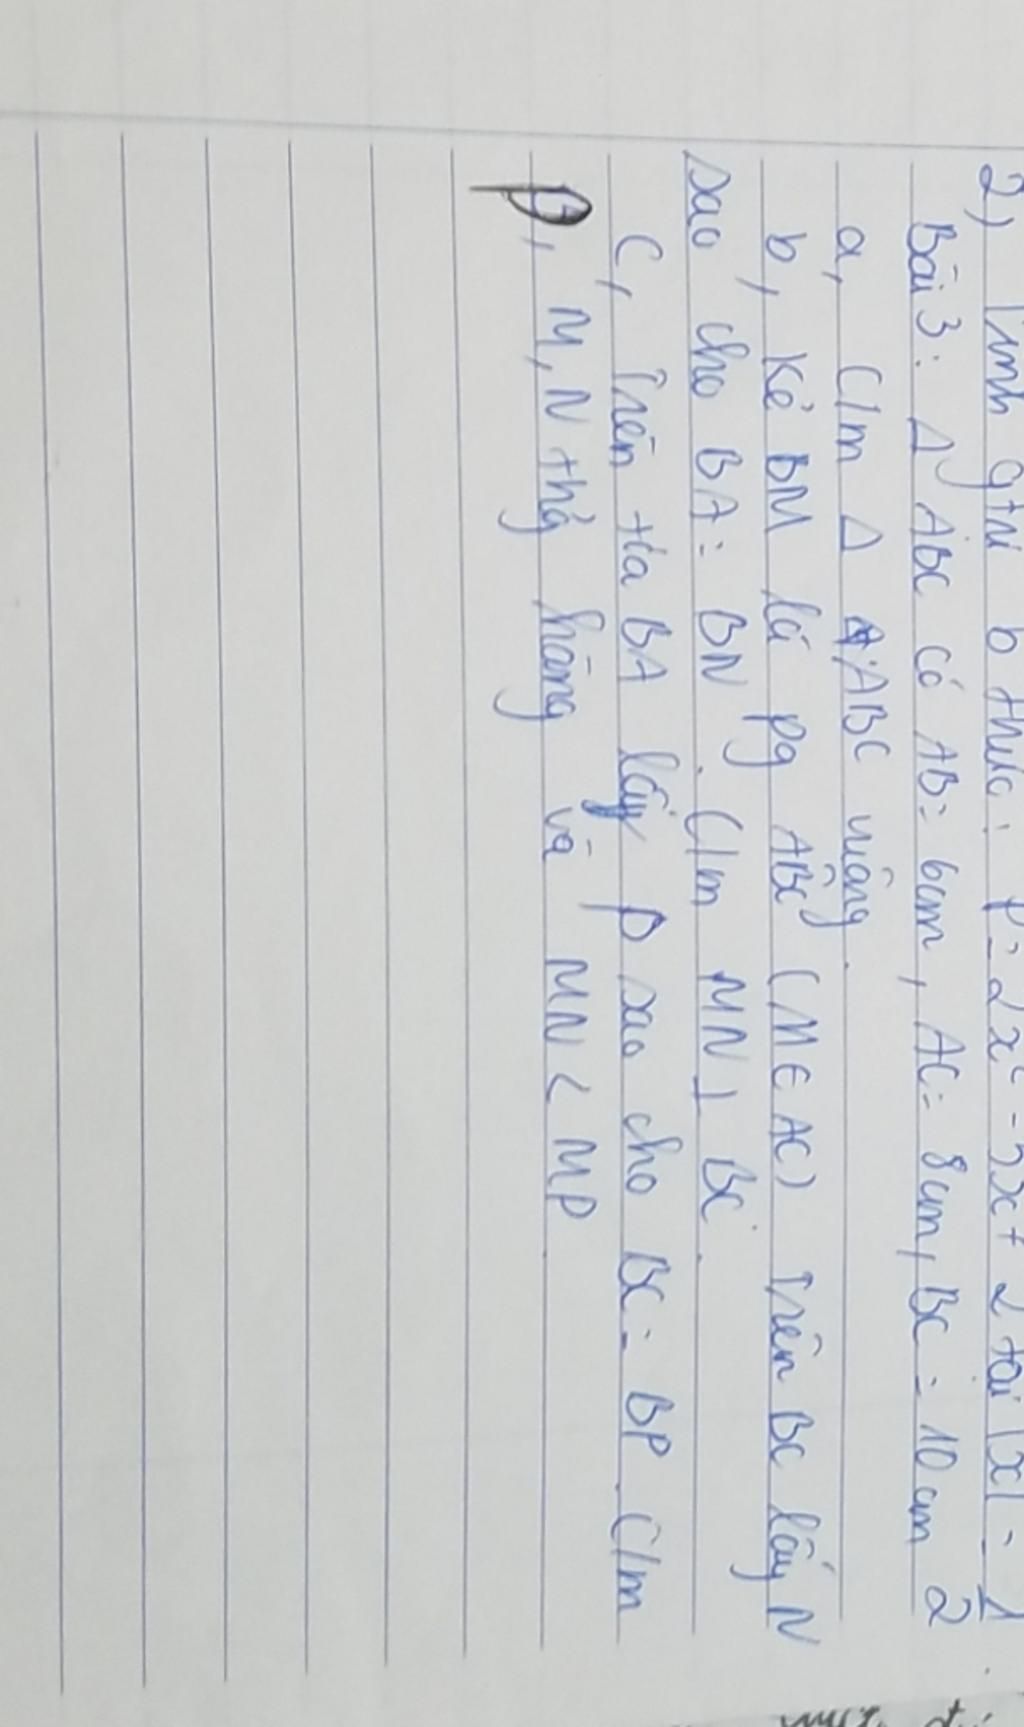 2, Tính gtri b thức: P = 2x² - 5x + 2 tại |x| = 1/2
Bài 3: Δ ABC có AB = 6cm, AC = 8cm, BC = 10cm
a, C/m Δ ABC vuông.
b, Kẻ BM là pg ABC (M ∈ AC) Trên BC lấy N
sao cho BA = BN. C/m MN ⊥ BC.
C, Trên tia BA lấy P sao cho BC = BP. C/m
P, M, N thẳg hàng và MN < MP